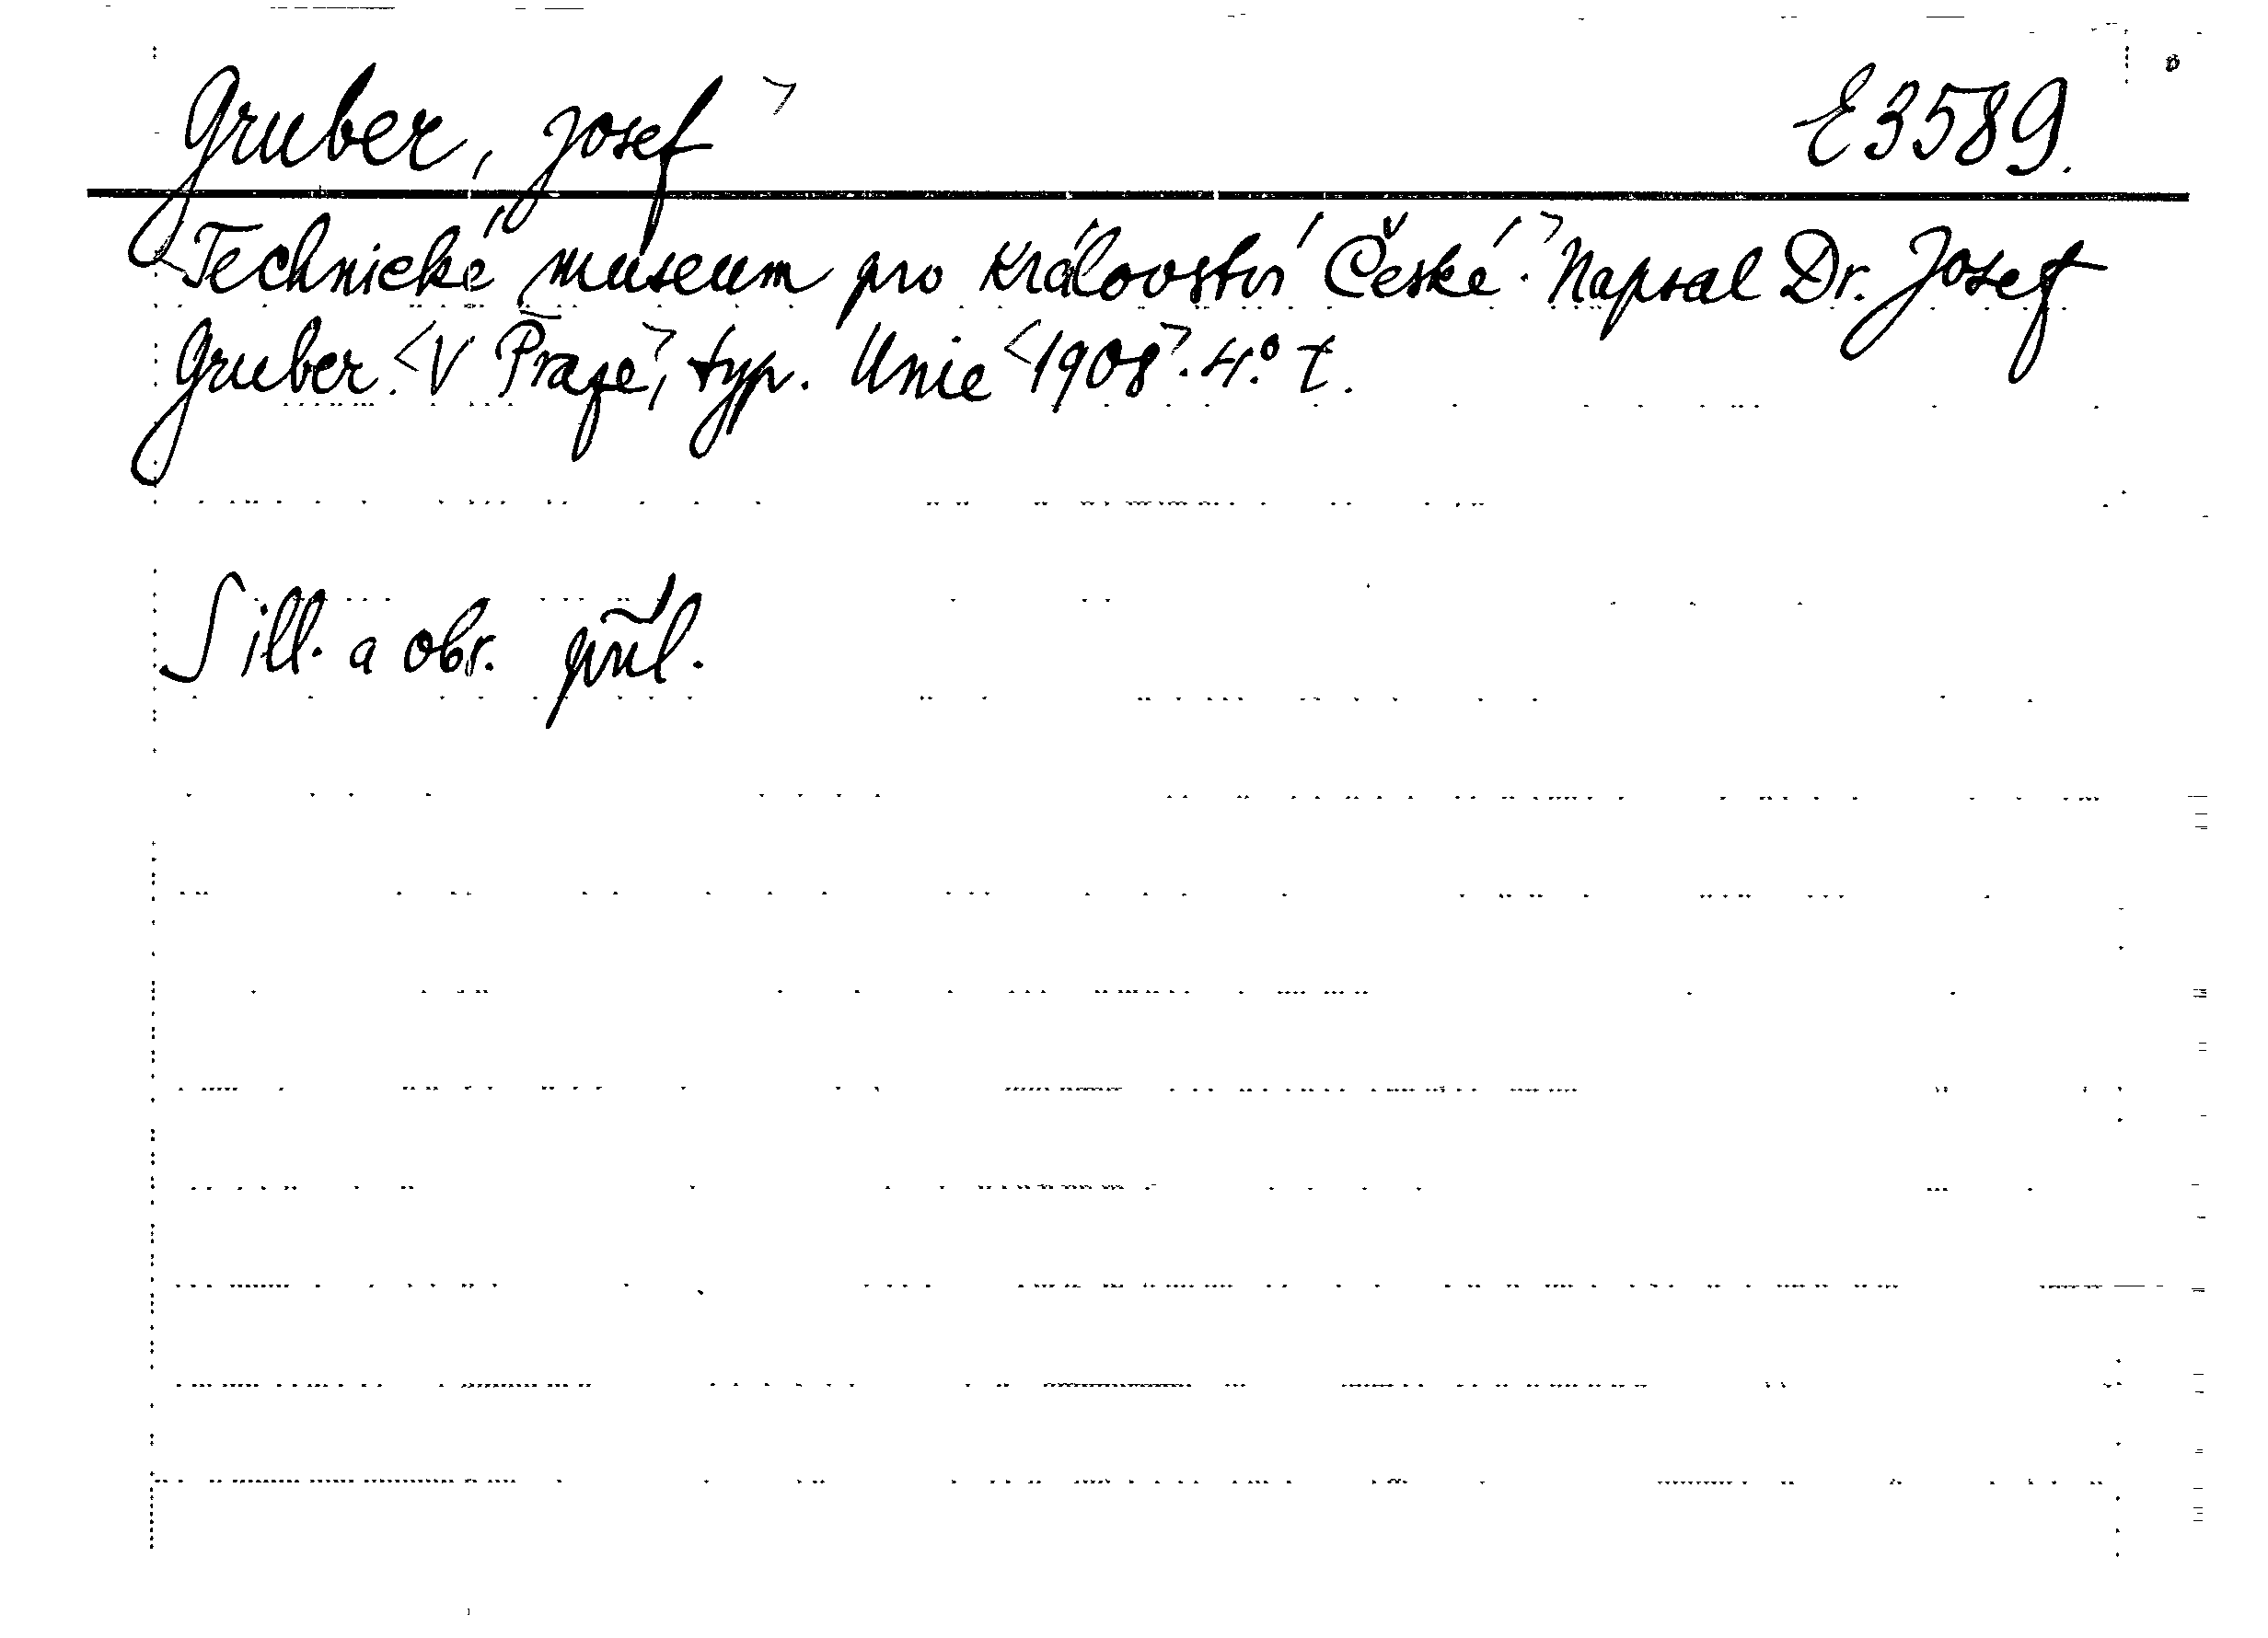 Gruber, Josef ˃ E 3589.
Technické museum pro království České.˃ Napsal Dr. Josef
Gruber. ˂V Praze˃, typ. Unie ˂1908˃. 4.° t.
S ill. a obr. příl.